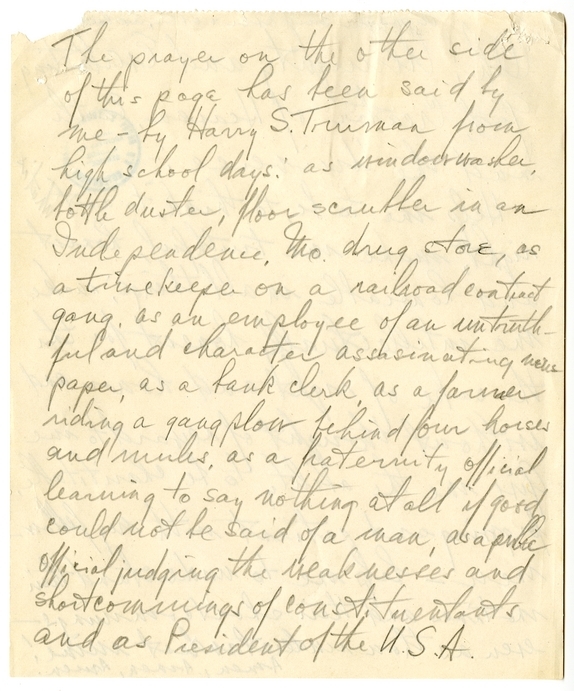 The prayer on the other side
of this page has been said by
me - by Harry S. Truman from
high school days: as window washer,
bottle duster, floor scrubber in an
Independence, Mo. drug store, as
a timekeeper on a railroad contract
gang. as an employee of an untruth-
ful and character assasinating news
paper, as a bank clerk, as a farmer
riding a gang plow behind four horses
and mules, as a fraternity official
learning to say nothing at all if good
could not be said of a man, as a public
official judging the weaknesses and
shortcommings of constituentants
and as President of the U.S.A.